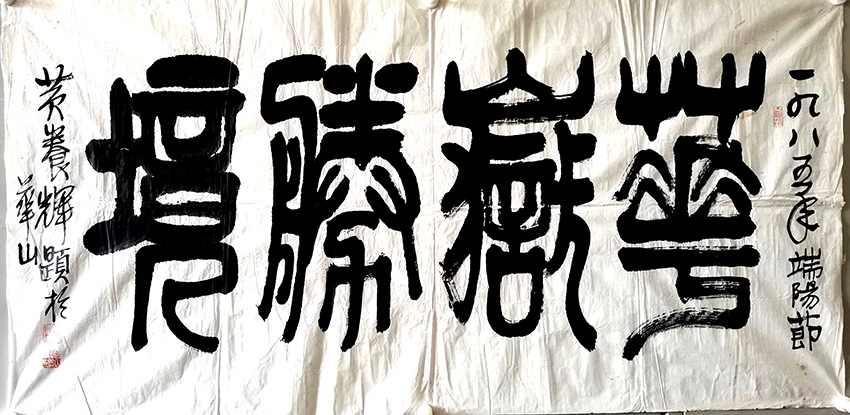 一九八五年端陽節
華嶽勝境
黄養輝題於
華山